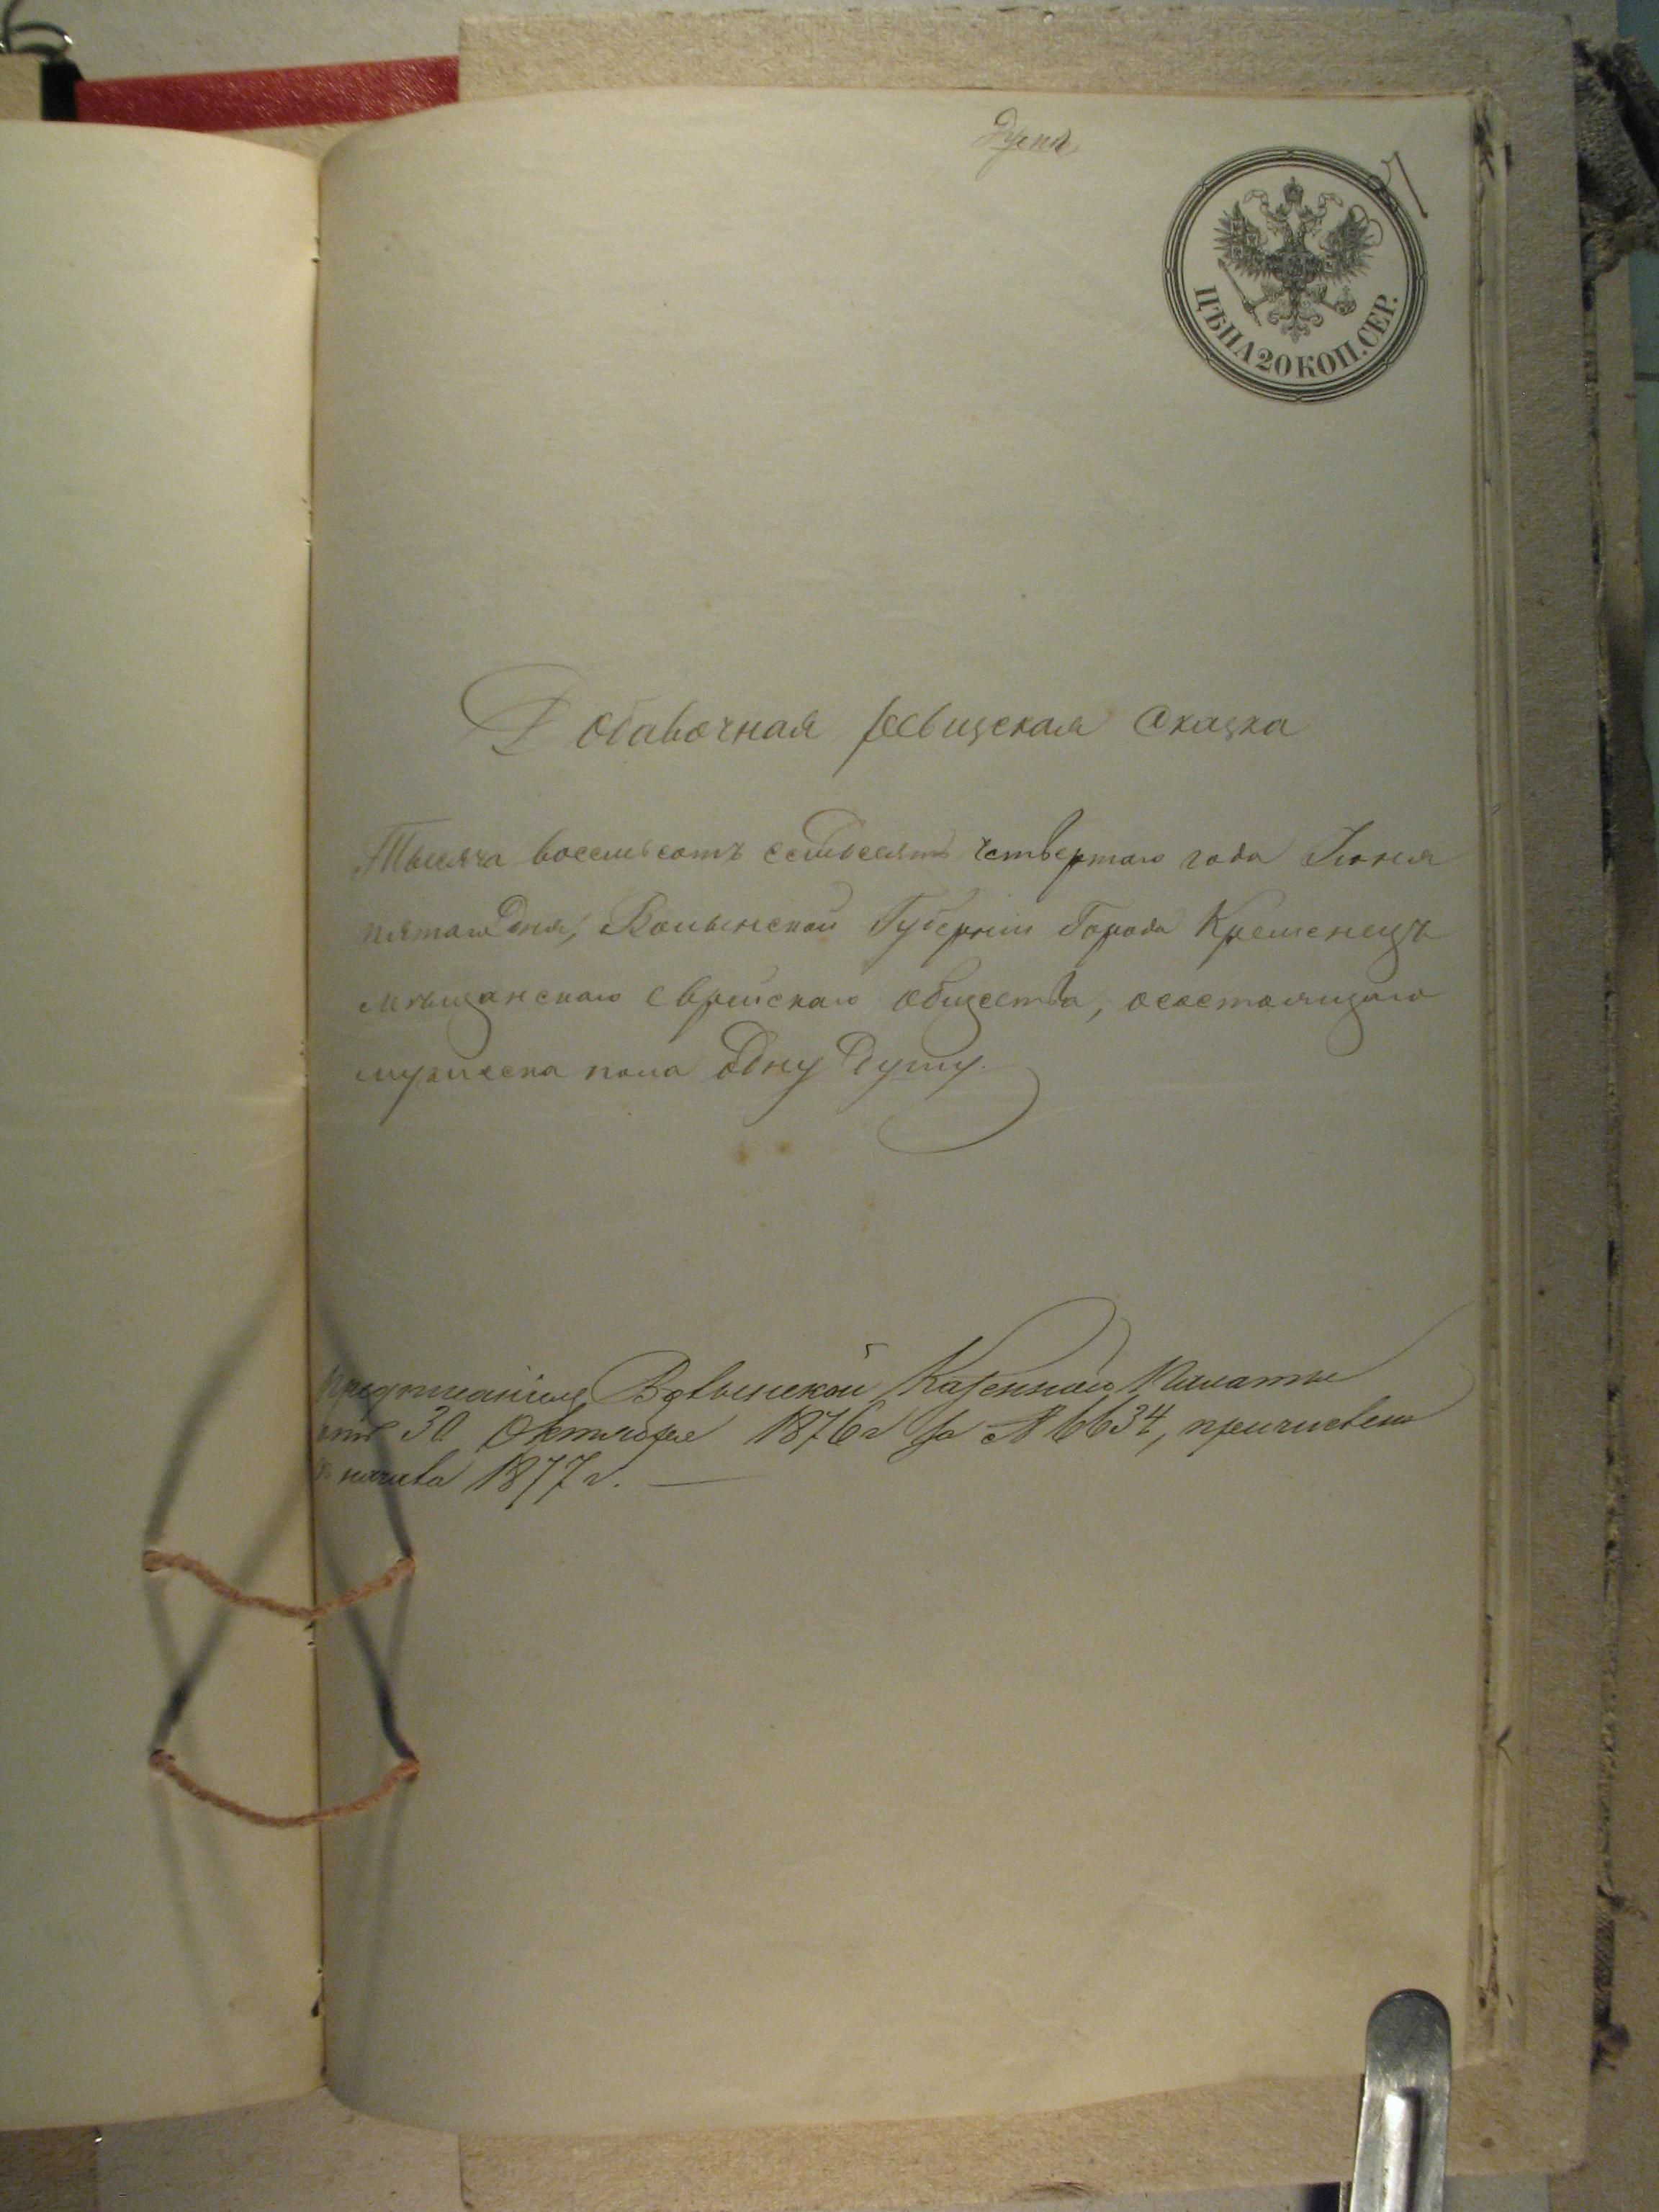 ЦѢНА 20 КОП. СЕР.
Добавочная ревизская сказка
Тысяча восемьсотъ семдесятъ четвертаго года Іюня
пятаго дня, Волынской Губерніи Города Кременецъ
мѣщанскаго еврейскаго общества, осостоящаго
мужеска пола одну душу.
предписаніемъ Волынской Казенной Палаты
отъ 30 Октября 1876 г за № 6634, причисленъ
съ начала 1877 г.